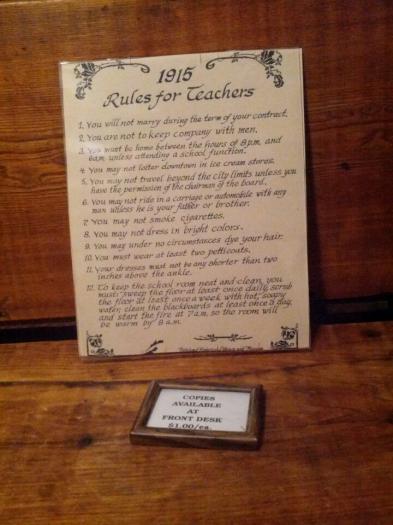 1915
Rules for Teachers
1. You will not marry during the term of your contract.
2. You are not to keep company with men.
3. You must be home between the hours of 8 p.m. and
6 a.m. unless attending a school function.
4. You may not loiter downtown in ice cream stores.
5. You may not travel beyond the city limits unless you
have the permission of the chairman of the board.
6. You may not ride in a carriage or automobile with any
man unless he is your father or brother.
7. You may not smoke cigarettes.
8. You may not dress in bright colors.
9. You may under no circumstances dye your hair.
10. You must wear at least two petticoats.
11. Your dresses must not be any shorter than two
inches above the ankle.
12. To keep the school room neat and clean, you
must: sweep the floor at least once daily, scrub
the floor at least once a week with hot, soapy
water, clean the blackboards at least once a day,
and start the fire at 7 a.m. so the room will
be warm by 8 a.m.
COPIES
AVAILABLE
AT
FRONT DESK
$1.00/ea.